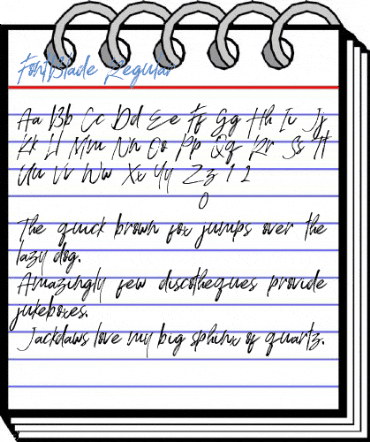 FontBlade Regular
Aa Bb Cc Dd Ee Ff Gg Hh Ii Jj
Kk Ll Mm Nn Oo Pp Qq Rr Ss Tt
Uu Vv Ww Xx Yy Zz 1 2
0
The quick brown fox jumps over the
lazy dog.
Amazingly few discotheques provide
jukeboxes.
Jackdaws love my big sphinx of quartz.